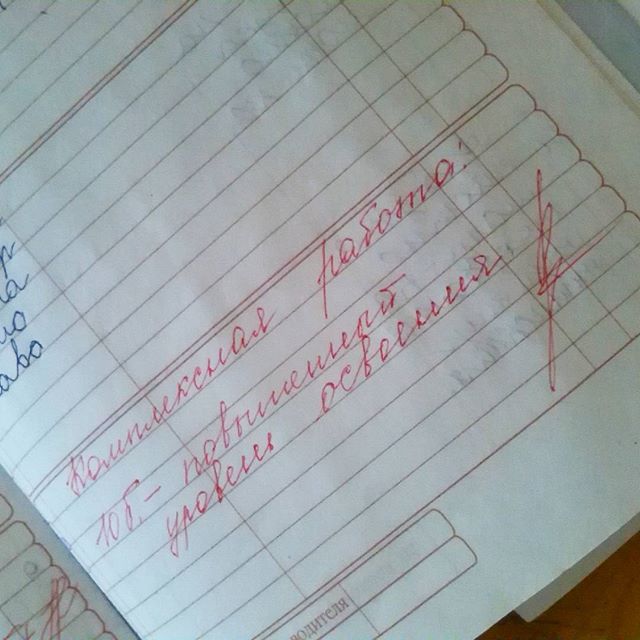 Комплексная работа:
10б.- повышенный
уровень освоения
ВОДИТЕЛЯ